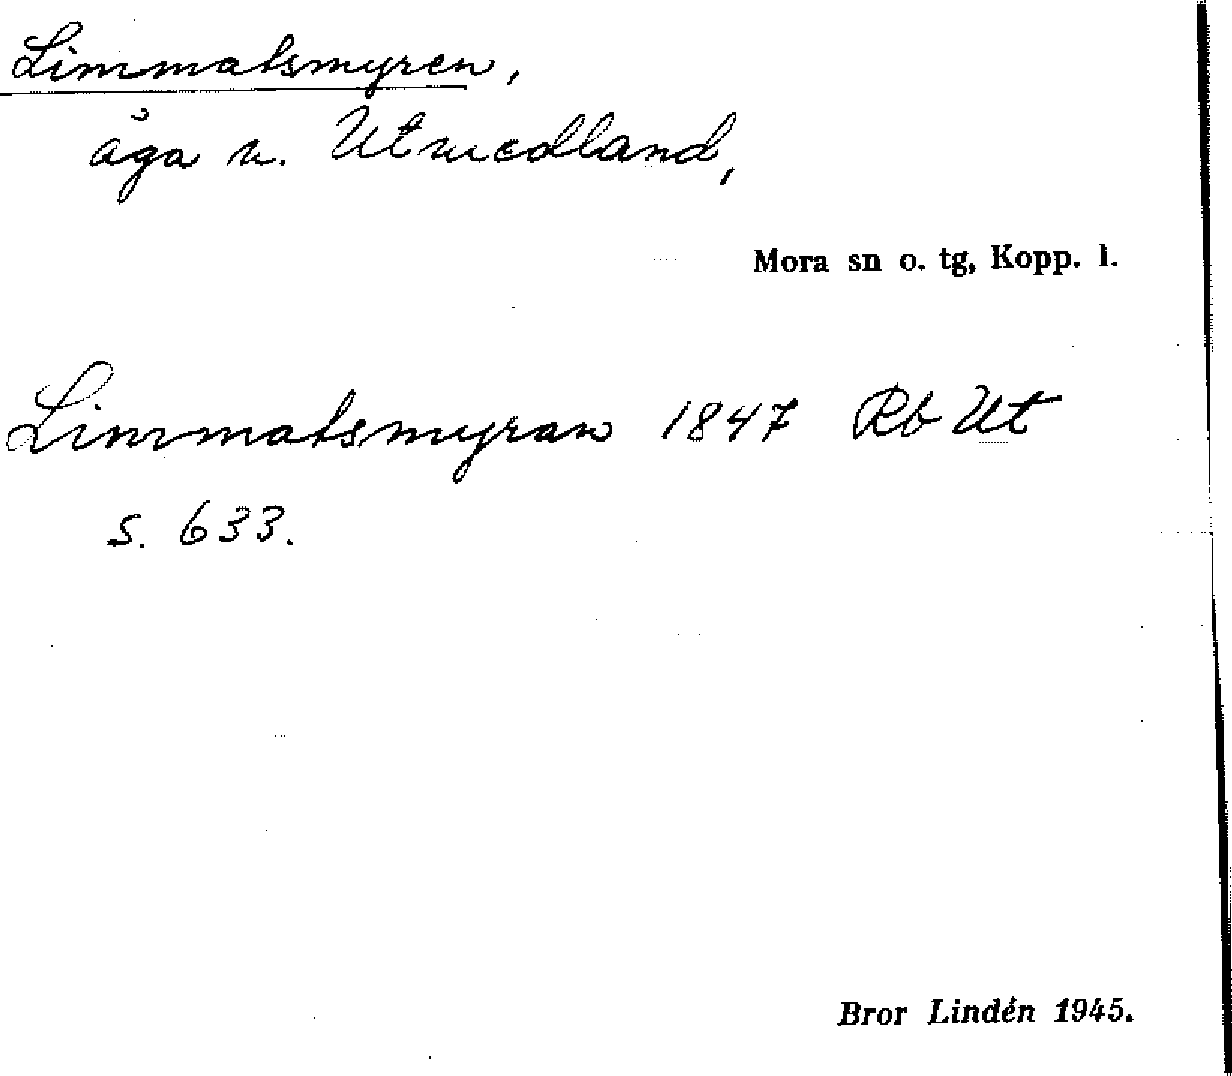 Limmatsmyren,
åga v. Utmedland,
Mora sn o. tg, Kopp. l.
Limmatsmyran 1847 Rb Ut
s. 633.
Bror Lindén 1945.